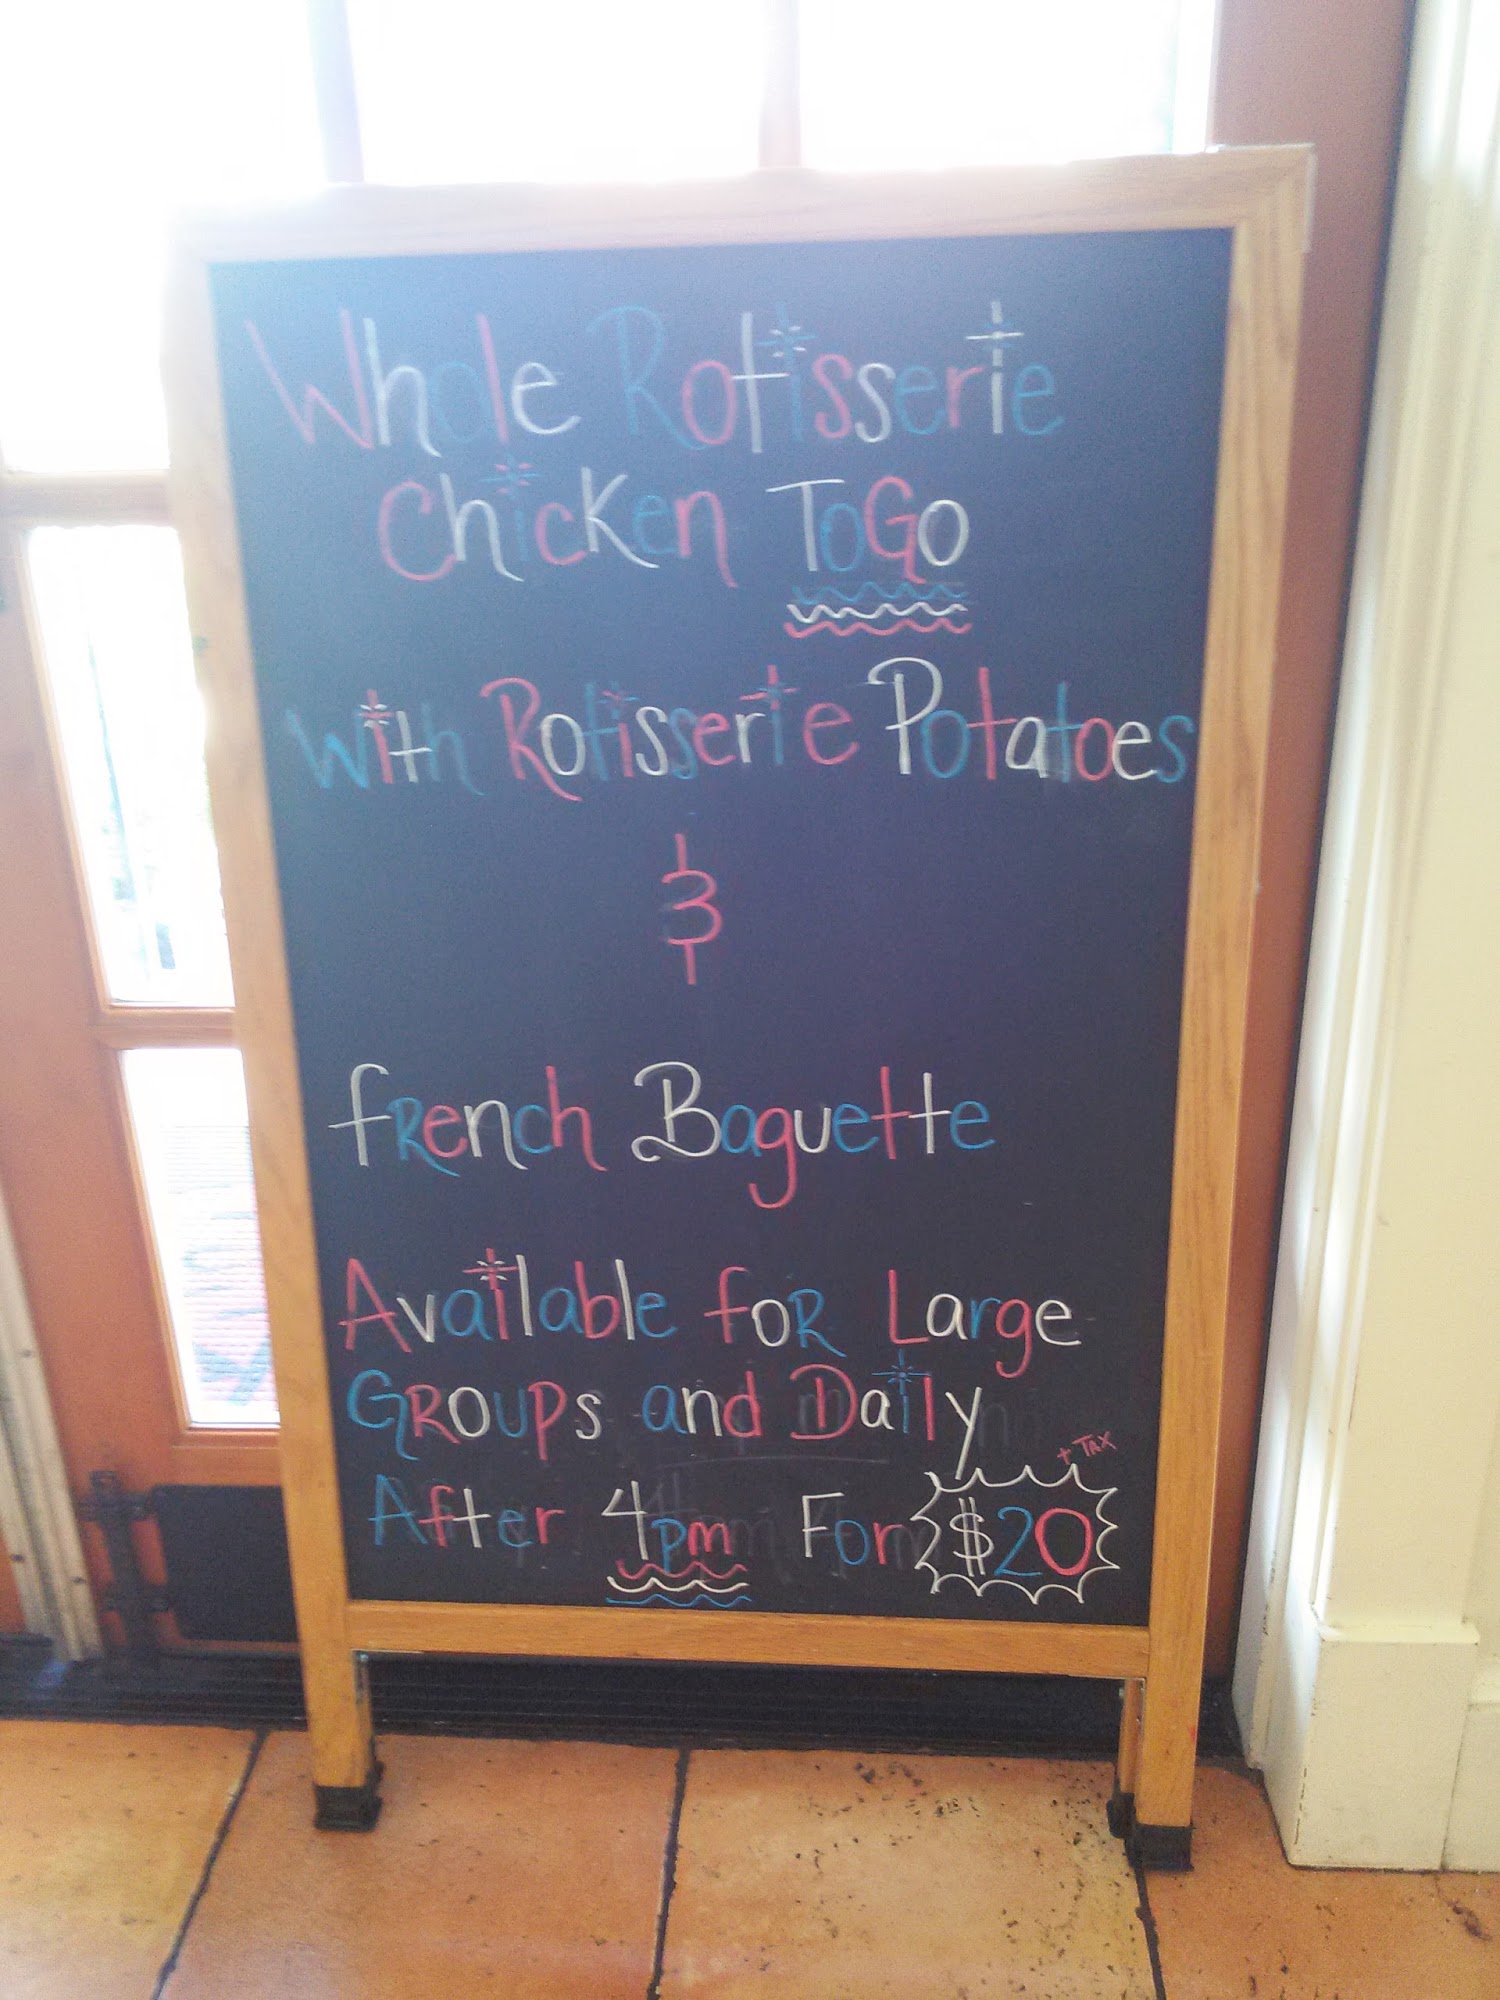 Whole Rotisserie
Chicken ToGo
with Rotisserie Potatoes
&
fRench Baguette
Available foR Large
GROUPs and Daily
+ TAX
After 4pm For $20